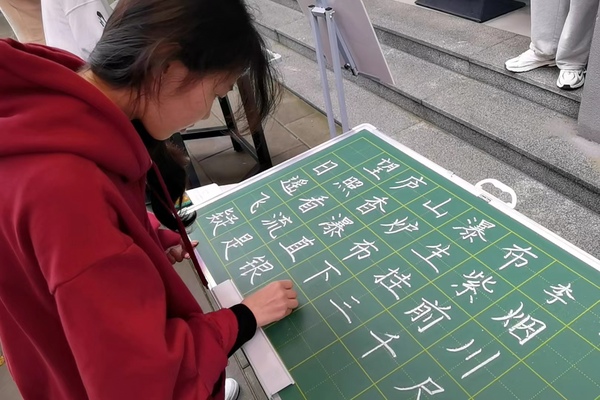 望庐山瀑布 李
日照香炉生紫烟
遥看瀑布挂前川
飞流直下三千尺
疑是银